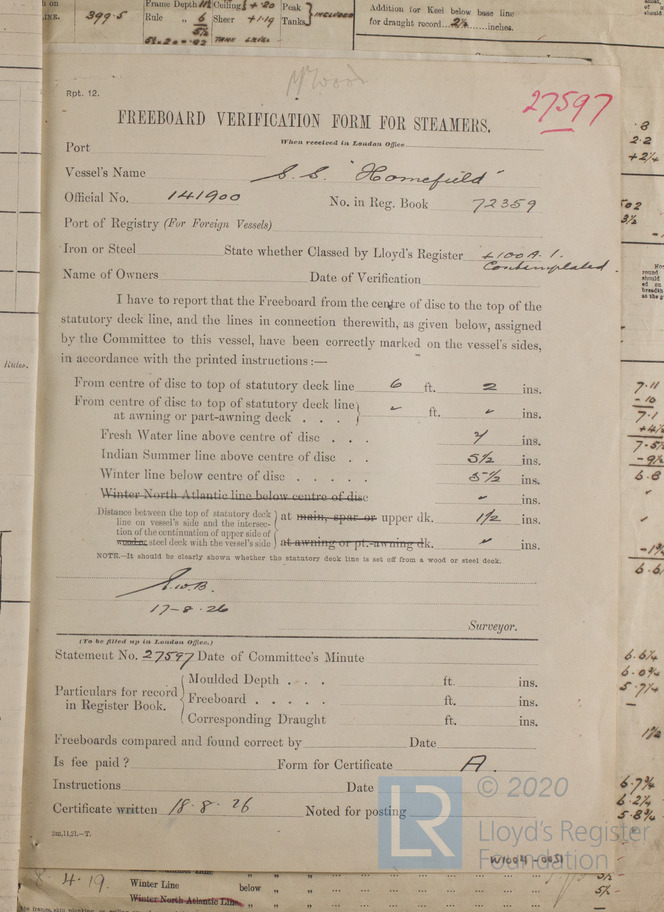 399.5
Frame Depth 11½ Ceiling + .20 Peak
Rule „ 6 Sheer + 1.19 Tanks INCLUDED
5½
Addition for Keel below base line
for draught record...2¼......inches.
McWood
Rpt. 12.
27597
FREEBOARD VERIFICATION FORM FOR STEAMERS.
When received in London Office
Port
Vessel's Name S.S. "Homefield"
Official No. 141900 No. in Reg. Book 72359
Port of Registry (For Foreign Vessels)
Iron or Steel State whether Classed by Lloyd's Register +100A.1.
Contemplated
Name of Owners Date of Verification
I have to report that the Freeboard from the centre of disc to the top of the
statutory deck line, and the lines in connection therewith, as given below, assigned
by the Committee to this vessel, have been correctly marked on the vessel's sides,
in accordance with the printed instructions :—
From centre of disc to top of statutory deck line 6 ft. 2 ins.
From centre of disc to top of statutory deck line
at awning or part-awning deck . . . ft. ins.
Fresh Water line above centre of disc . . . 4 ins.
Indian Summer line above centre of disc . . 5½ ins.
Winter line below centre of disc . . . . . 5½ ins.
Winter North Atlantic line below centre of disc „ ins.
Distance between the top of statutory deck
line on vessel's side and the intersec-
tion of the continuation of upper side of
wood or steel deck with the vessel's side
at main, spar or upper dk. 1½ ins.
at awning or pt.-awning dk. ins.
NOTE.—It should be clearly shown whether the statutory deck line is set off from a wood or steel deck.
S.W.B.
17-8-26
Surveyor.
(To be filled up in London Office.)
Statement No. 27597 Date of Committee's Minute
Particulars for record
in Register Book.
Moulded Depth . . . ft. ins.
Freeboard . . . . . ft. ins.
Corresponding Draught ft. ins.
Freeboards compared and found correct by Date
Is fee paid ? Form for Certificate A.
Instructions Date
Certificate written 18.8.26 Noted for posting
2m,11,21.—T.
LR
© 2020
Lloyd's Register
Foundation
W1004-0051
Rules.
.8
2.2
+2¼
7.11
-10
7.1
6.8
1½
4.19.
Winter Line below „ „
Winter North Atlantic Line „ „ „